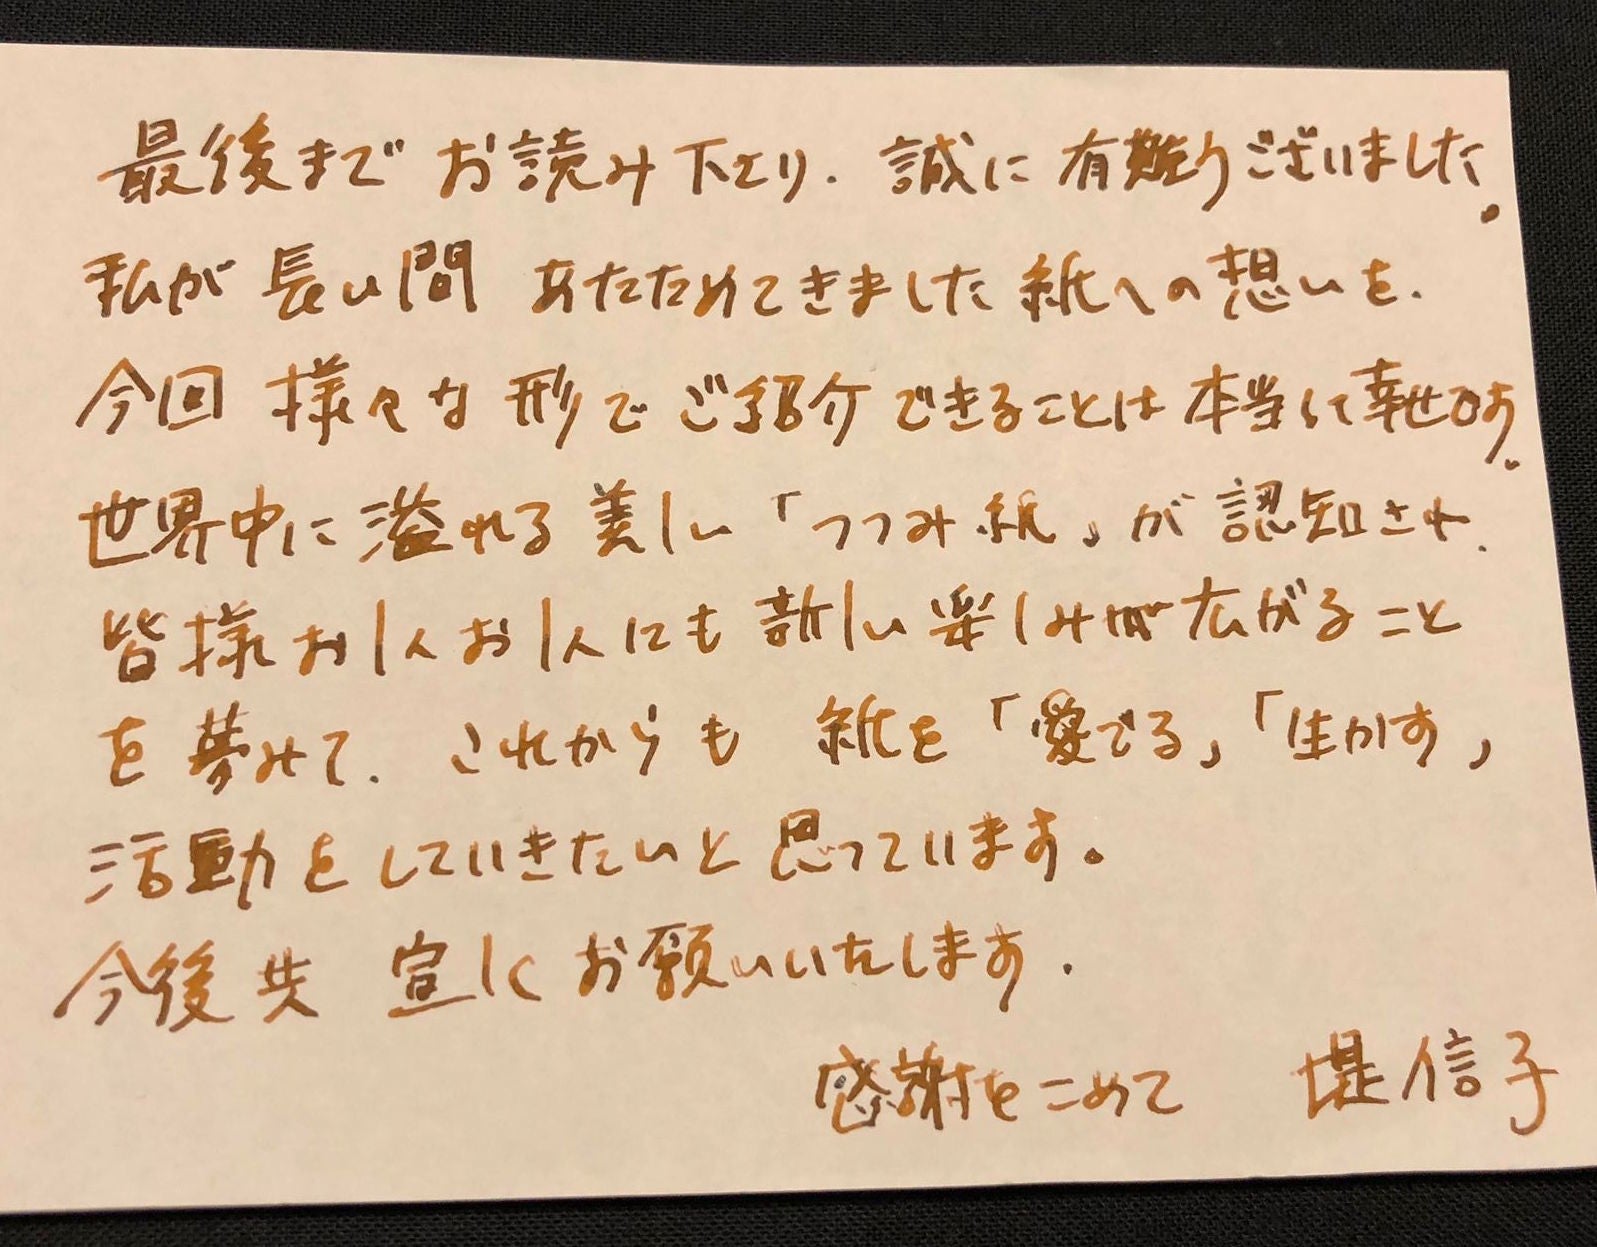 最後まで お読み下さり、誠に有難うございました。
私が長い間 あたためてきました紙への想いを、
今回 様々な形でご紹介できることは本当に幸せです。
世界中に溢れる美しい「つつみ紙」が認知され、
皆様お1人お1人にも新しい楽しみが広がること
を夢みて、これからも 紙を「愛でる」「生かす」
活動をしていきたいと思っています。
今後共 宜しくお願いいたします。
感謝をこめて 堤信子